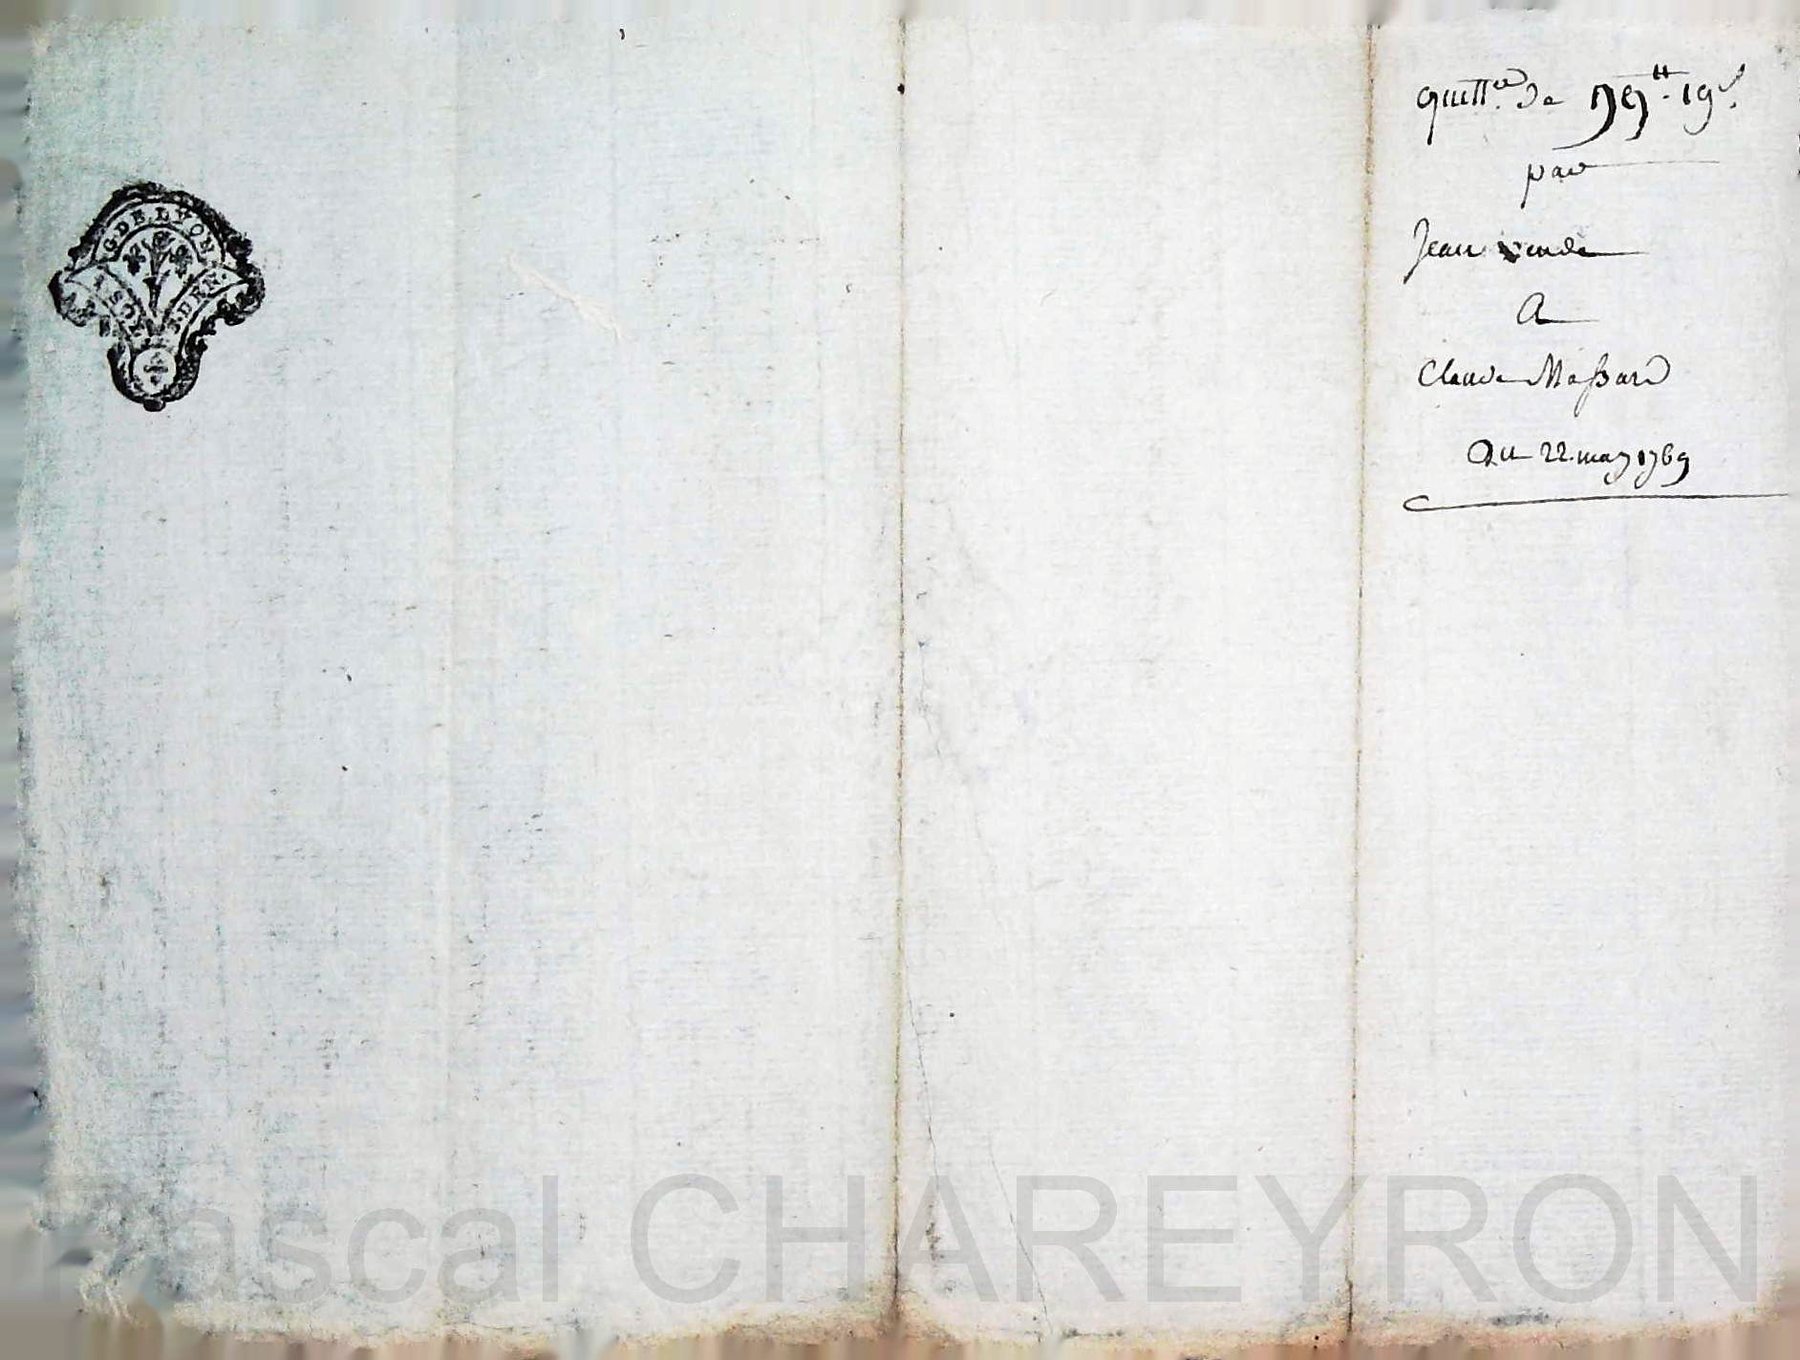 G. DE LYON
quitt.ce de 197tt. 19s.
par
Jean
A
Claude Massard
Du 22 may 1769
Pascal CHAREYRON